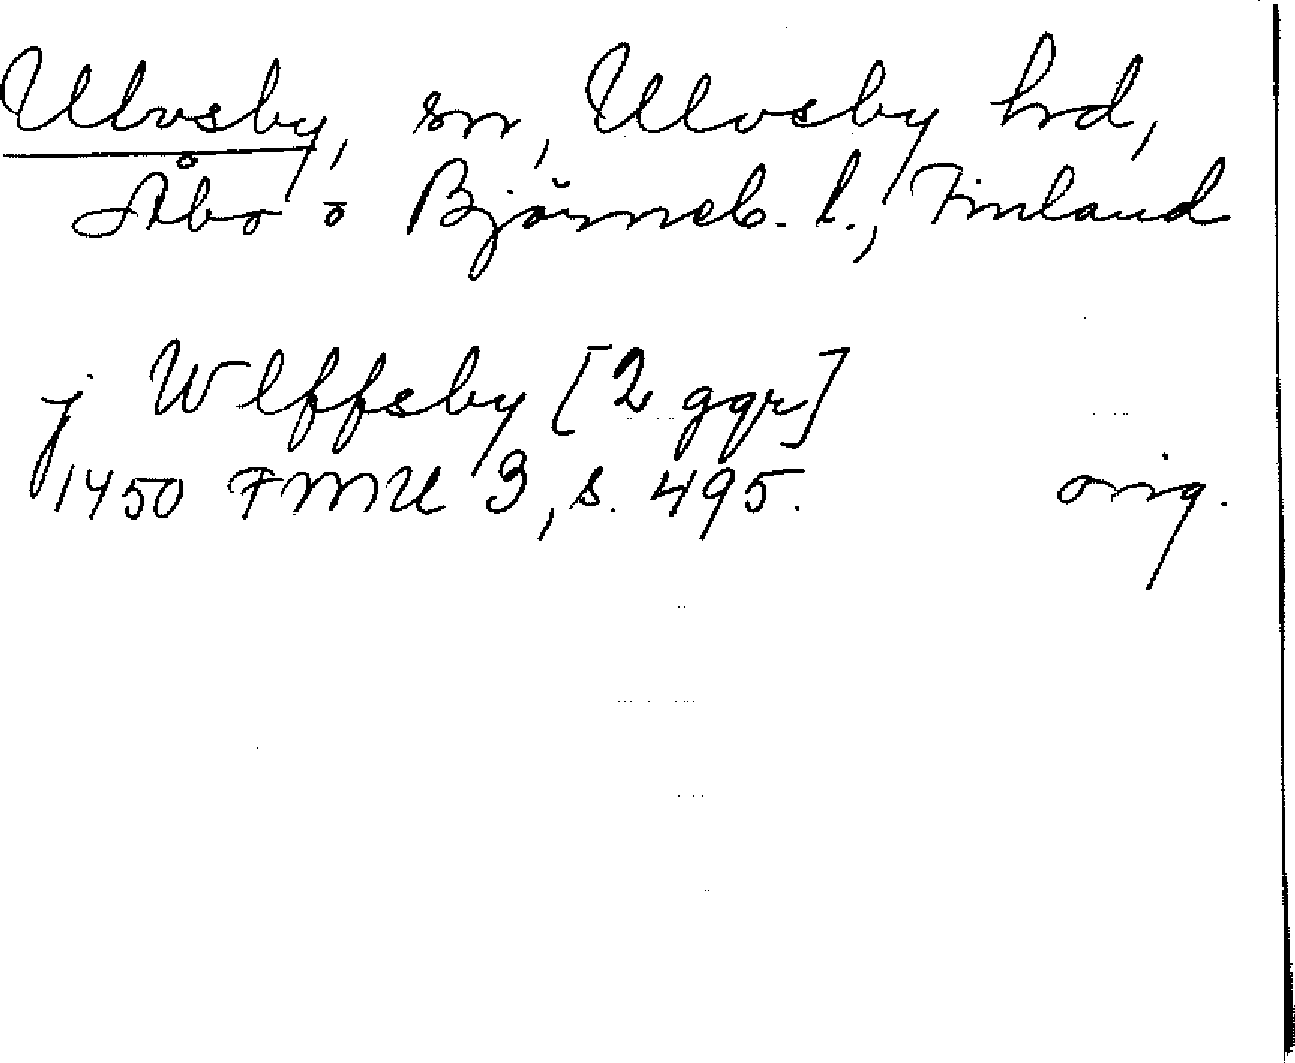 Ulvsby, sn, Ulvsby hd,
Åbo o Björneb. l., Finland
j Wlffsby [2 ggr]
1450 FMU 3, s. 495. orig.